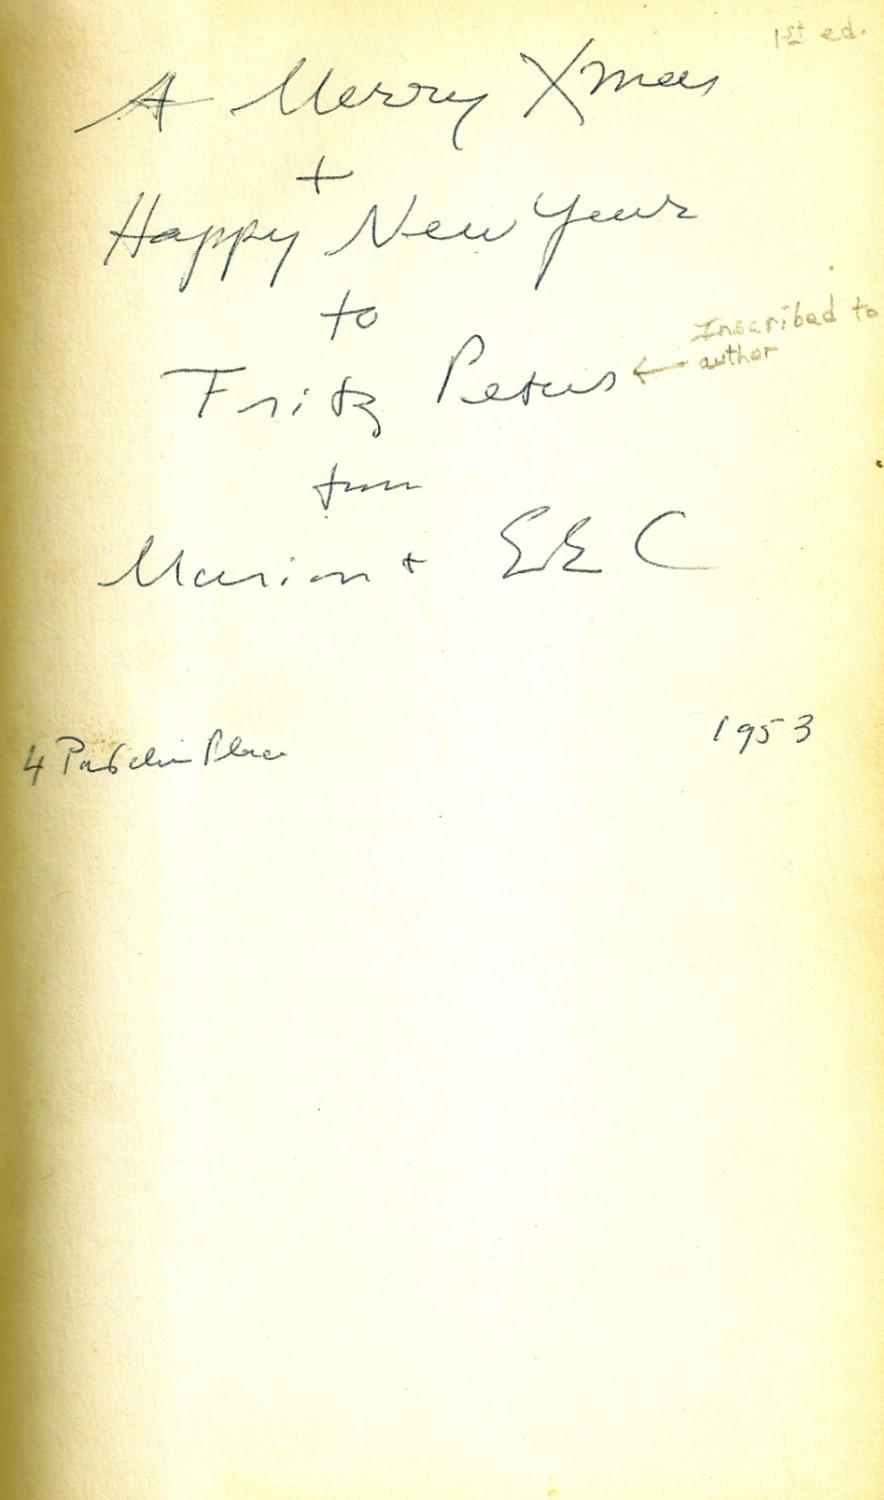 1st ed.
A Merry Xmas
+
Happy New Year
to
Fritz Peters
Inscribed to
author
from
Marion + EEC
4 Patchin Place
1953